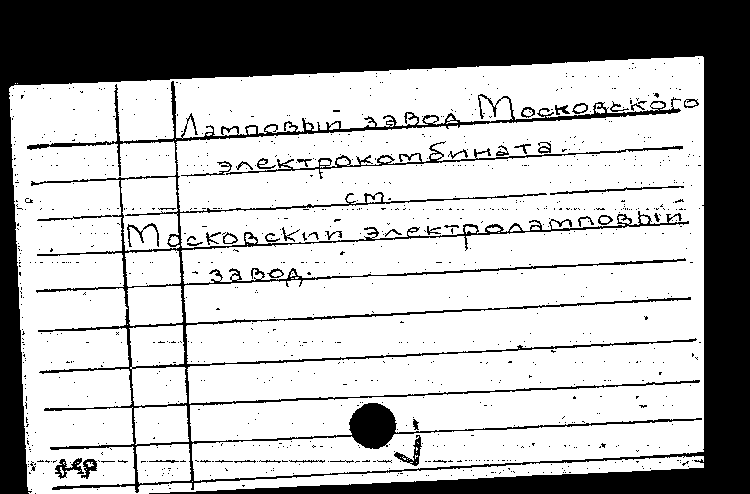 Ламповый завод Московского
электрокомбината.
см.
Московский электроламповый
завод.